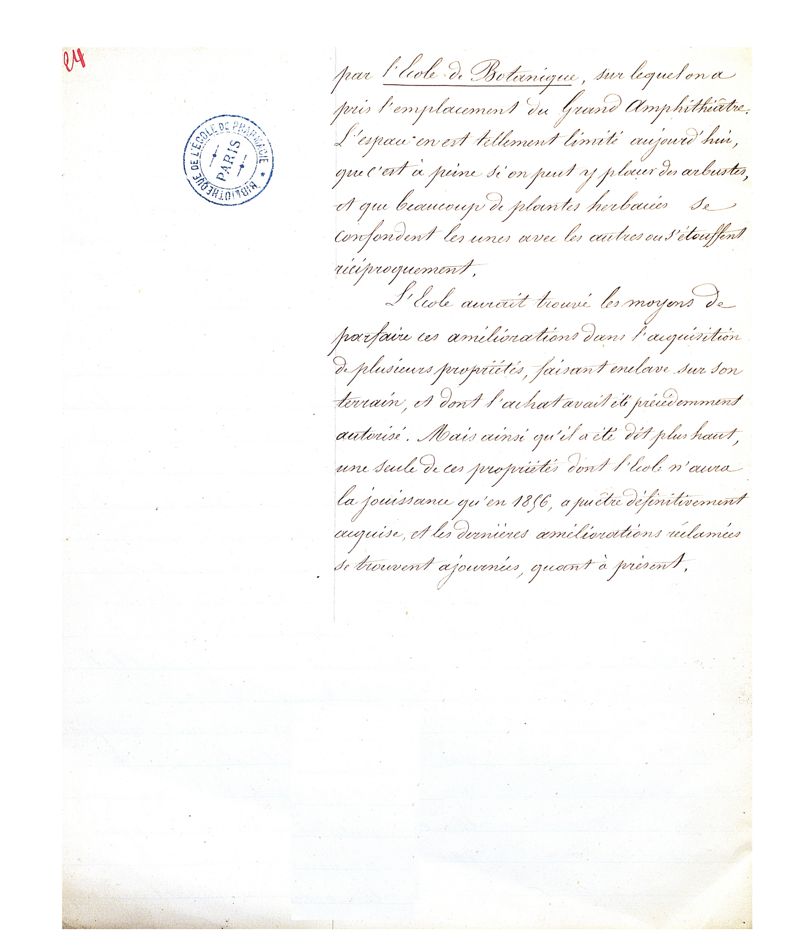 24
BIBLIOTHÈQUE DE L'ÉCOLE DE PHARMACIE
PARIS
par l'Ecole de Botanique, sur lequel on a
pris l'emplacement du Grand Amphithéâtre.
L'espace en est tellement limité aujourd'hui,
que c'est à peine si on peut y placer des arbustes,
et que beaucoup de plantes herbacées se
confondent les unes avec les autres ou s'étouffent
réciproquement.
L'Ecole aurait trouvé les moyens de
parfaire ces améliorations dans l'acquisition
de plusieurs propriétés, faisant enclave sur son
terrain, et dont l'achat avait été précédemment
autorisé. Mais ainsi qu'il a été dit plus haut,
une seule de ces propriétés dont l'Ecole n'aura
la jouissance qu'en 1856, a pu être définitivement
acquise, et les dernières améliorations réclamées
se trouvent ajournées, quant à présent.